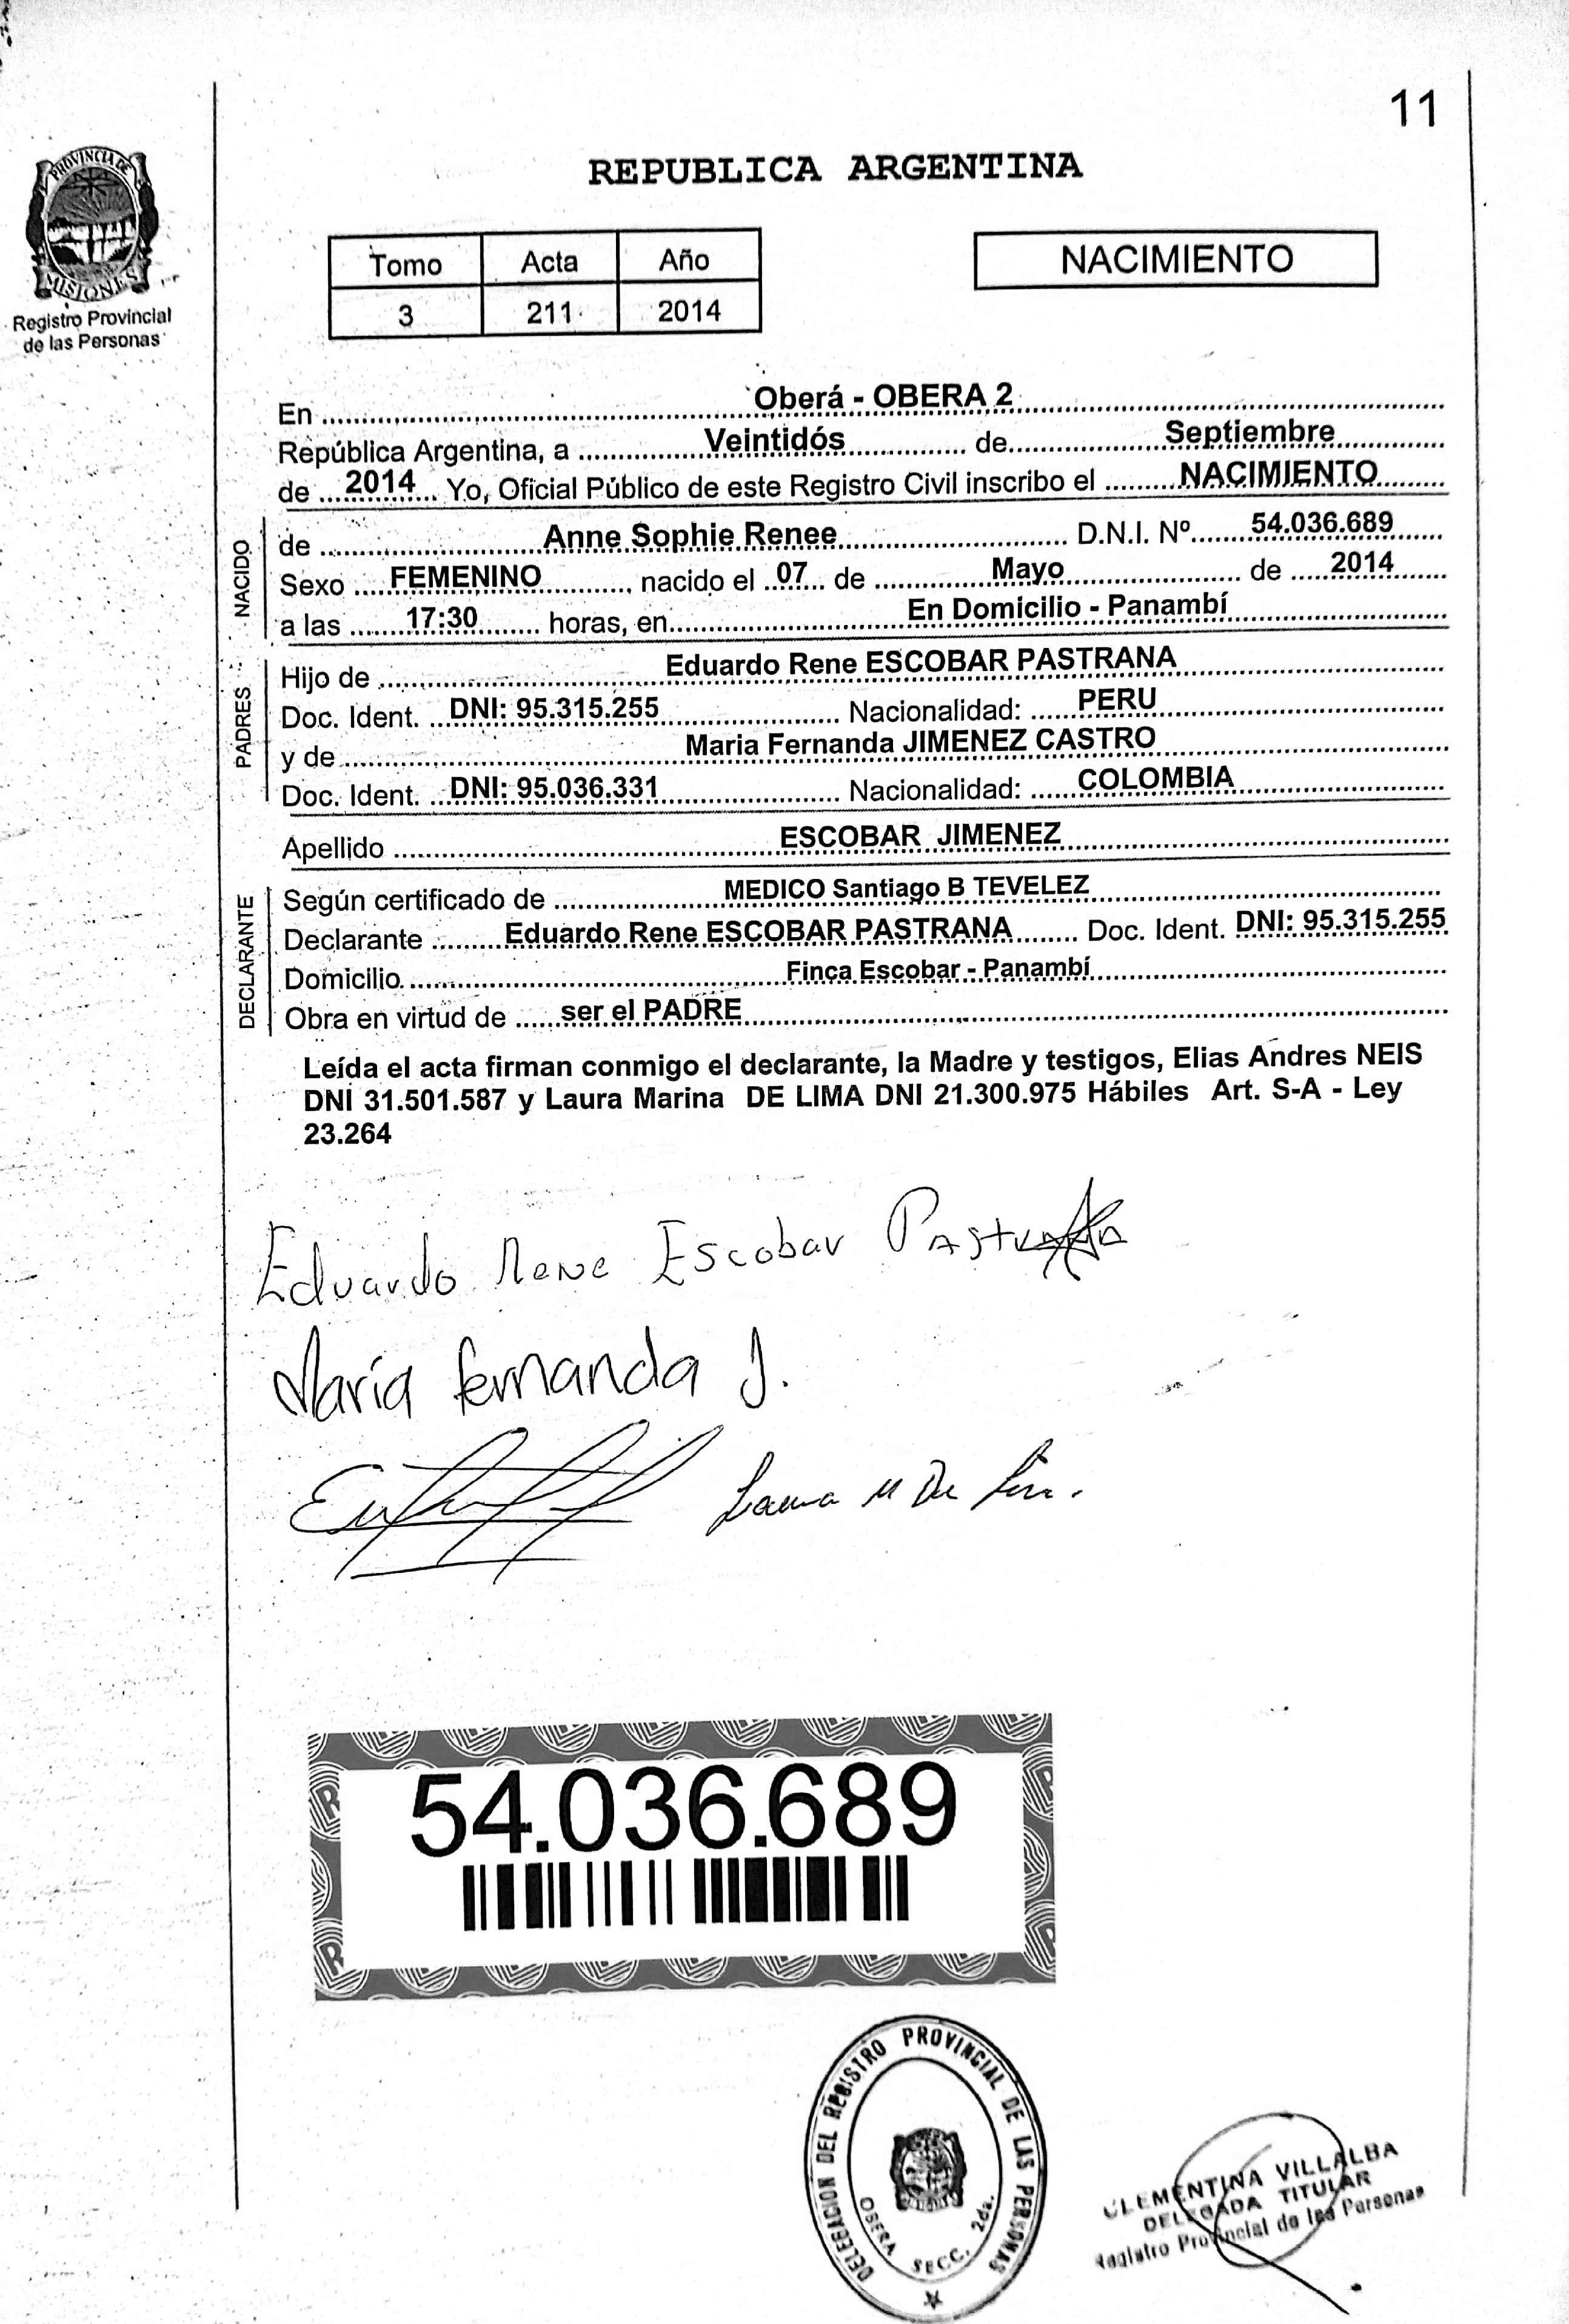 11
PROVINCIA DE
MISIONES
Registro Provincial
de las Personas
REPUBLICA ARGENTINA
Tomo Acta Año
3 211 2014
NACIMIENTO
En Oberá - OBERA 2
República Argentina, a Veintidós de Septiembre
de 2014 Yo, Oficial Público de este Registro Civil inscribo el NACIMIENTO
NACIDO
de Anne Sophie Renee D.N.I. Nº 54.036.689
Sexo FEMENINO, nacido el 07 de Mayo de 2014
a las 17:30 horas, en En Domicilio - Panambí
PADRES
Hijo de Eduardo Rene ESCOBAR PASTRANA
Doc. Ident. DNI: 95.315.255 Nacionalidad: PERU
y de Maria Fernanda JIMENEZ CASTRO
Doc. Ident. DNI: 95.036.331 Nacionalidad: COLOMBIA
Apellido ESCOBAR JIMENEZ
DECLARANTE
Según certificado de MEDICO Santiago B TEVELEZ
Declarante Eduardo Rene ESCOBAR PASTRANA Doc. Ident. DNI: 95.315.255
Domicilio Finca Escobar - Panambí
Obra en virtud de ser el PADRE
Leída el acta firman conmigo el declarante, la Madre y testigos, Elias Andres NEIS
DNI 31.501.587 y Laura Marina DE LIMA DNI 21.300.975 Hábiles Art. S-A - Ley
23.264
Eduardo Rene Escobar Pastrana
María fernanda J.
Laura M De Lima
54.036.689
DELEGACION DEL REGISTRO PROVINCIAL DE LAS PERSONAS
OBERA SECC. 2da.
CLEMENTINA VILLALBA
DELEGADA TITULAR
Registro Provincial de las Personas